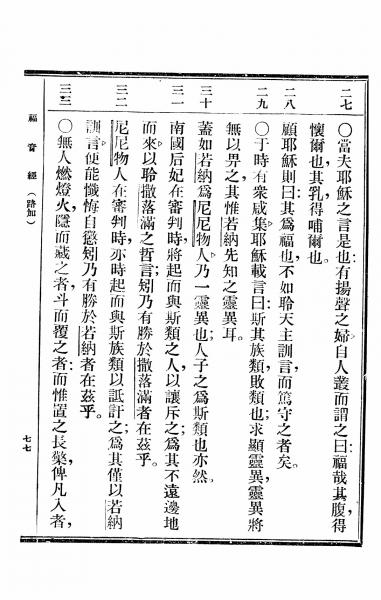 二七
○當夫耶穌之言是也有揚聲之婦自人叢而謂之曰福哉其腹得
懷爾也其乳得哺爾也。
二八
顧耶穌則曰其爲福也不如聆天主訓言而篤守之者矣。
二九
○于時有衆咸集耶穌載言曰斯其族類敗類也求顯靈異靈異將
無以畀之其惟若納先知之靈異耳。
三十
蓋如若納爲尼尼物人乃一靈異也人子之爲斯類也亦然。
三一
南國后妃在審判時將起而與斯類之人以讓斥之爲其不遠邊地
而來以聆撒落滿之哲言矧乃有勝於撒落滿者在茲乎。
三二
尼尼物人在審判時亦時起而與斯族類以詆訐之爲其僅以若納
訓言便能懺悔自懲矧乃有勝於若納者在茲乎。
三三
○無人燃燈火隱而藏之者斗而覆之者而惟置之長檠俾凡入者，
福音經（路加）
七七